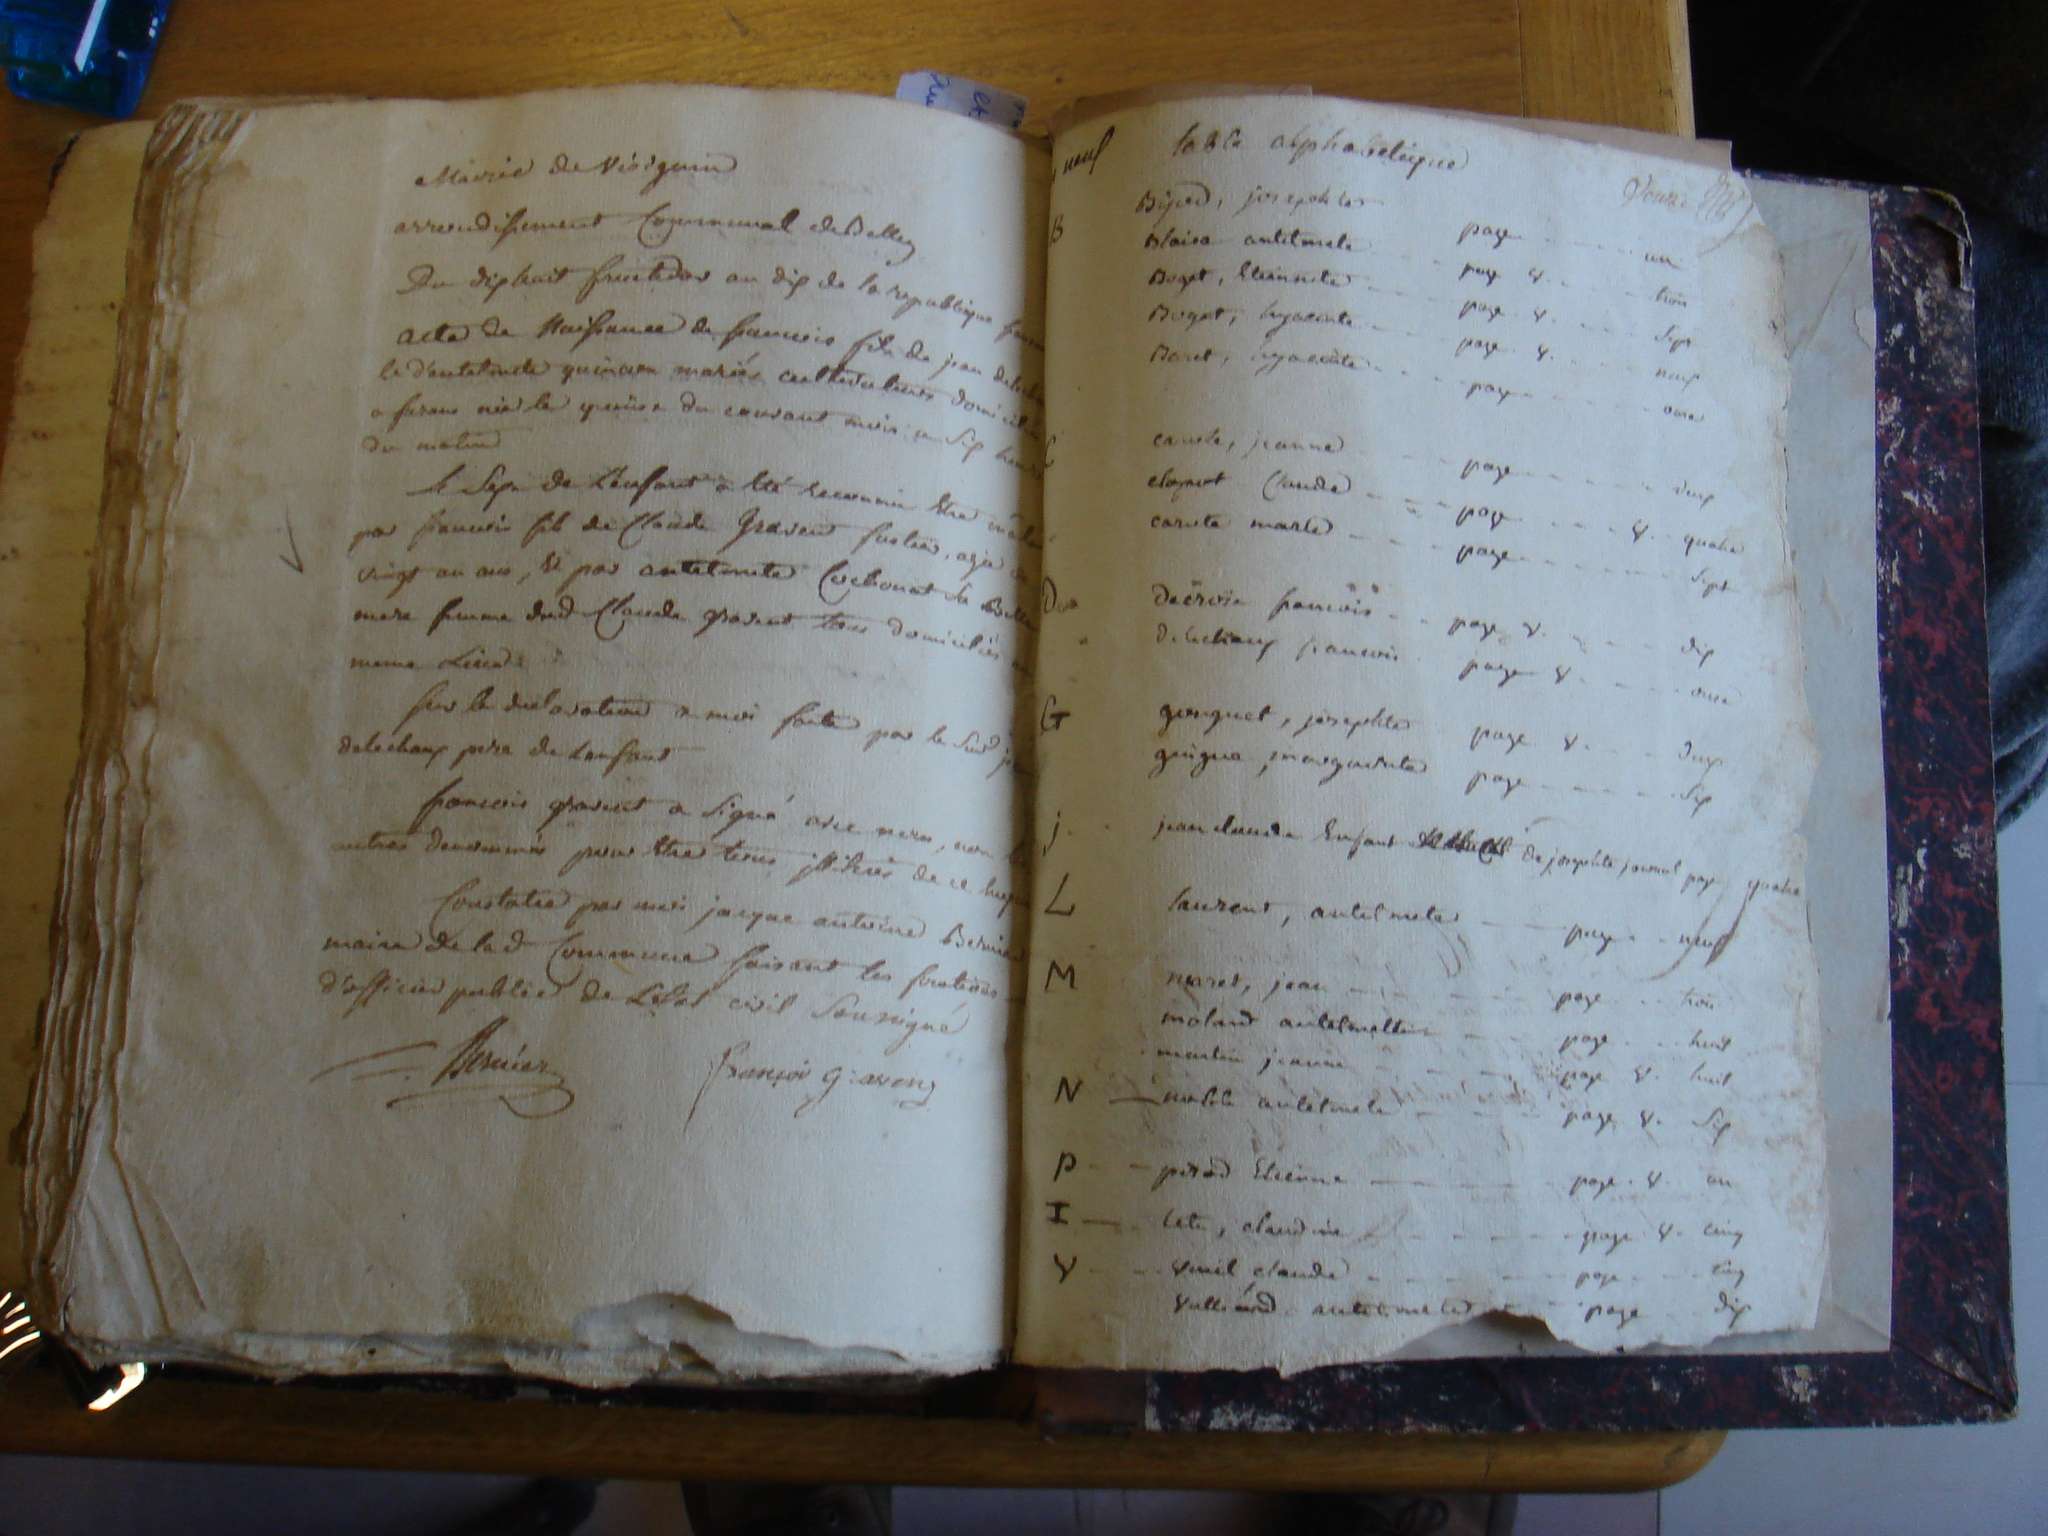 Mairie de Virignin
arrondissement Communal de Belley
Du dix huit fructidor an dix de la republique
acte de Naissance de francois fils de jean delechau
le d'antelmete mariés cultivateurs domicilié
a furans nié le quinze du courant mois a six heure
du matin
le Sexe de Lenfant a été reconnu Etre male
par francois fils de Claude Gravent fustier, agé de
vingt un ans, Et par antelmete Cochonat sa Belle
mere femme dud Claude gravent tous domiciliés au
meme Lieu
Sur la declaration a moi faite par le Sud jean
delechaux pere de Lenfant
francois gravent a Signé avec nous, non les
autres denommés pour Etre tous illiteré de ce Enquis
Constaté par moi jacque antoine Bernier
maire de la d Commune faisant les fonctions
d'officier public de Letat civil Soussigné
Bernier François graven
neuf
table alphabetique
B
josephte page un
Blaise antelmete page v. trois
Boget, Etiennete page v. Sept
Boget, hyacinte page v. neuf
Boret, hyacinte page onze
C
carrete, jeanne page deux
Claude page v. quatre
carrete marie page Sept
D
decroix francois page v. dix
delechaux francois page v. onze
G
gonguet, josephte page v. deux
guigue, marguerite page Six
j
jean claude Enfant de josephte journal page quatre
L
laurent, antelmete page neuf
M
merret, jean page trois
molard antelmette page huit
martin jeanne page v. huit
N
antelmete page v. Six
P
pirod Etienne page v. un
T
tete, claudine page v. cinq
V
Vuil claude page cinq
antelmete page dix